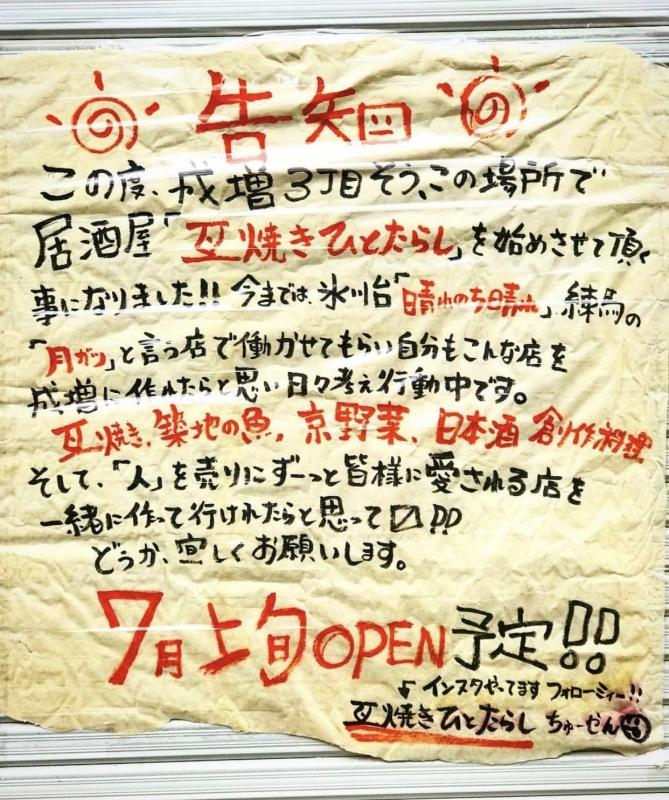 の 告知 の
この度、成増3丁目そう、この場所で
居酒屋「瓦焼きひとたらし」を始めさせて頂く
事になりました!! 今までは、氷川台「晴れのち晴れ」、練馬の
「月がつ」と言う店で働かせてもらい自分もこんな店を
成増に作れたらと思い日々考え行動中です。
瓦焼き、築地の魚、京野菜、日本酒 創作料理
そして、「人」を売りにずーっと皆様に愛される店を
一緒に作って行けれたらと思って〼!!
どうか、宜しくお願いします。
7月上旬OPEN予定!!
インスタやってます フォローミィー!!
瓦焼きひとたらし ちゅーせん